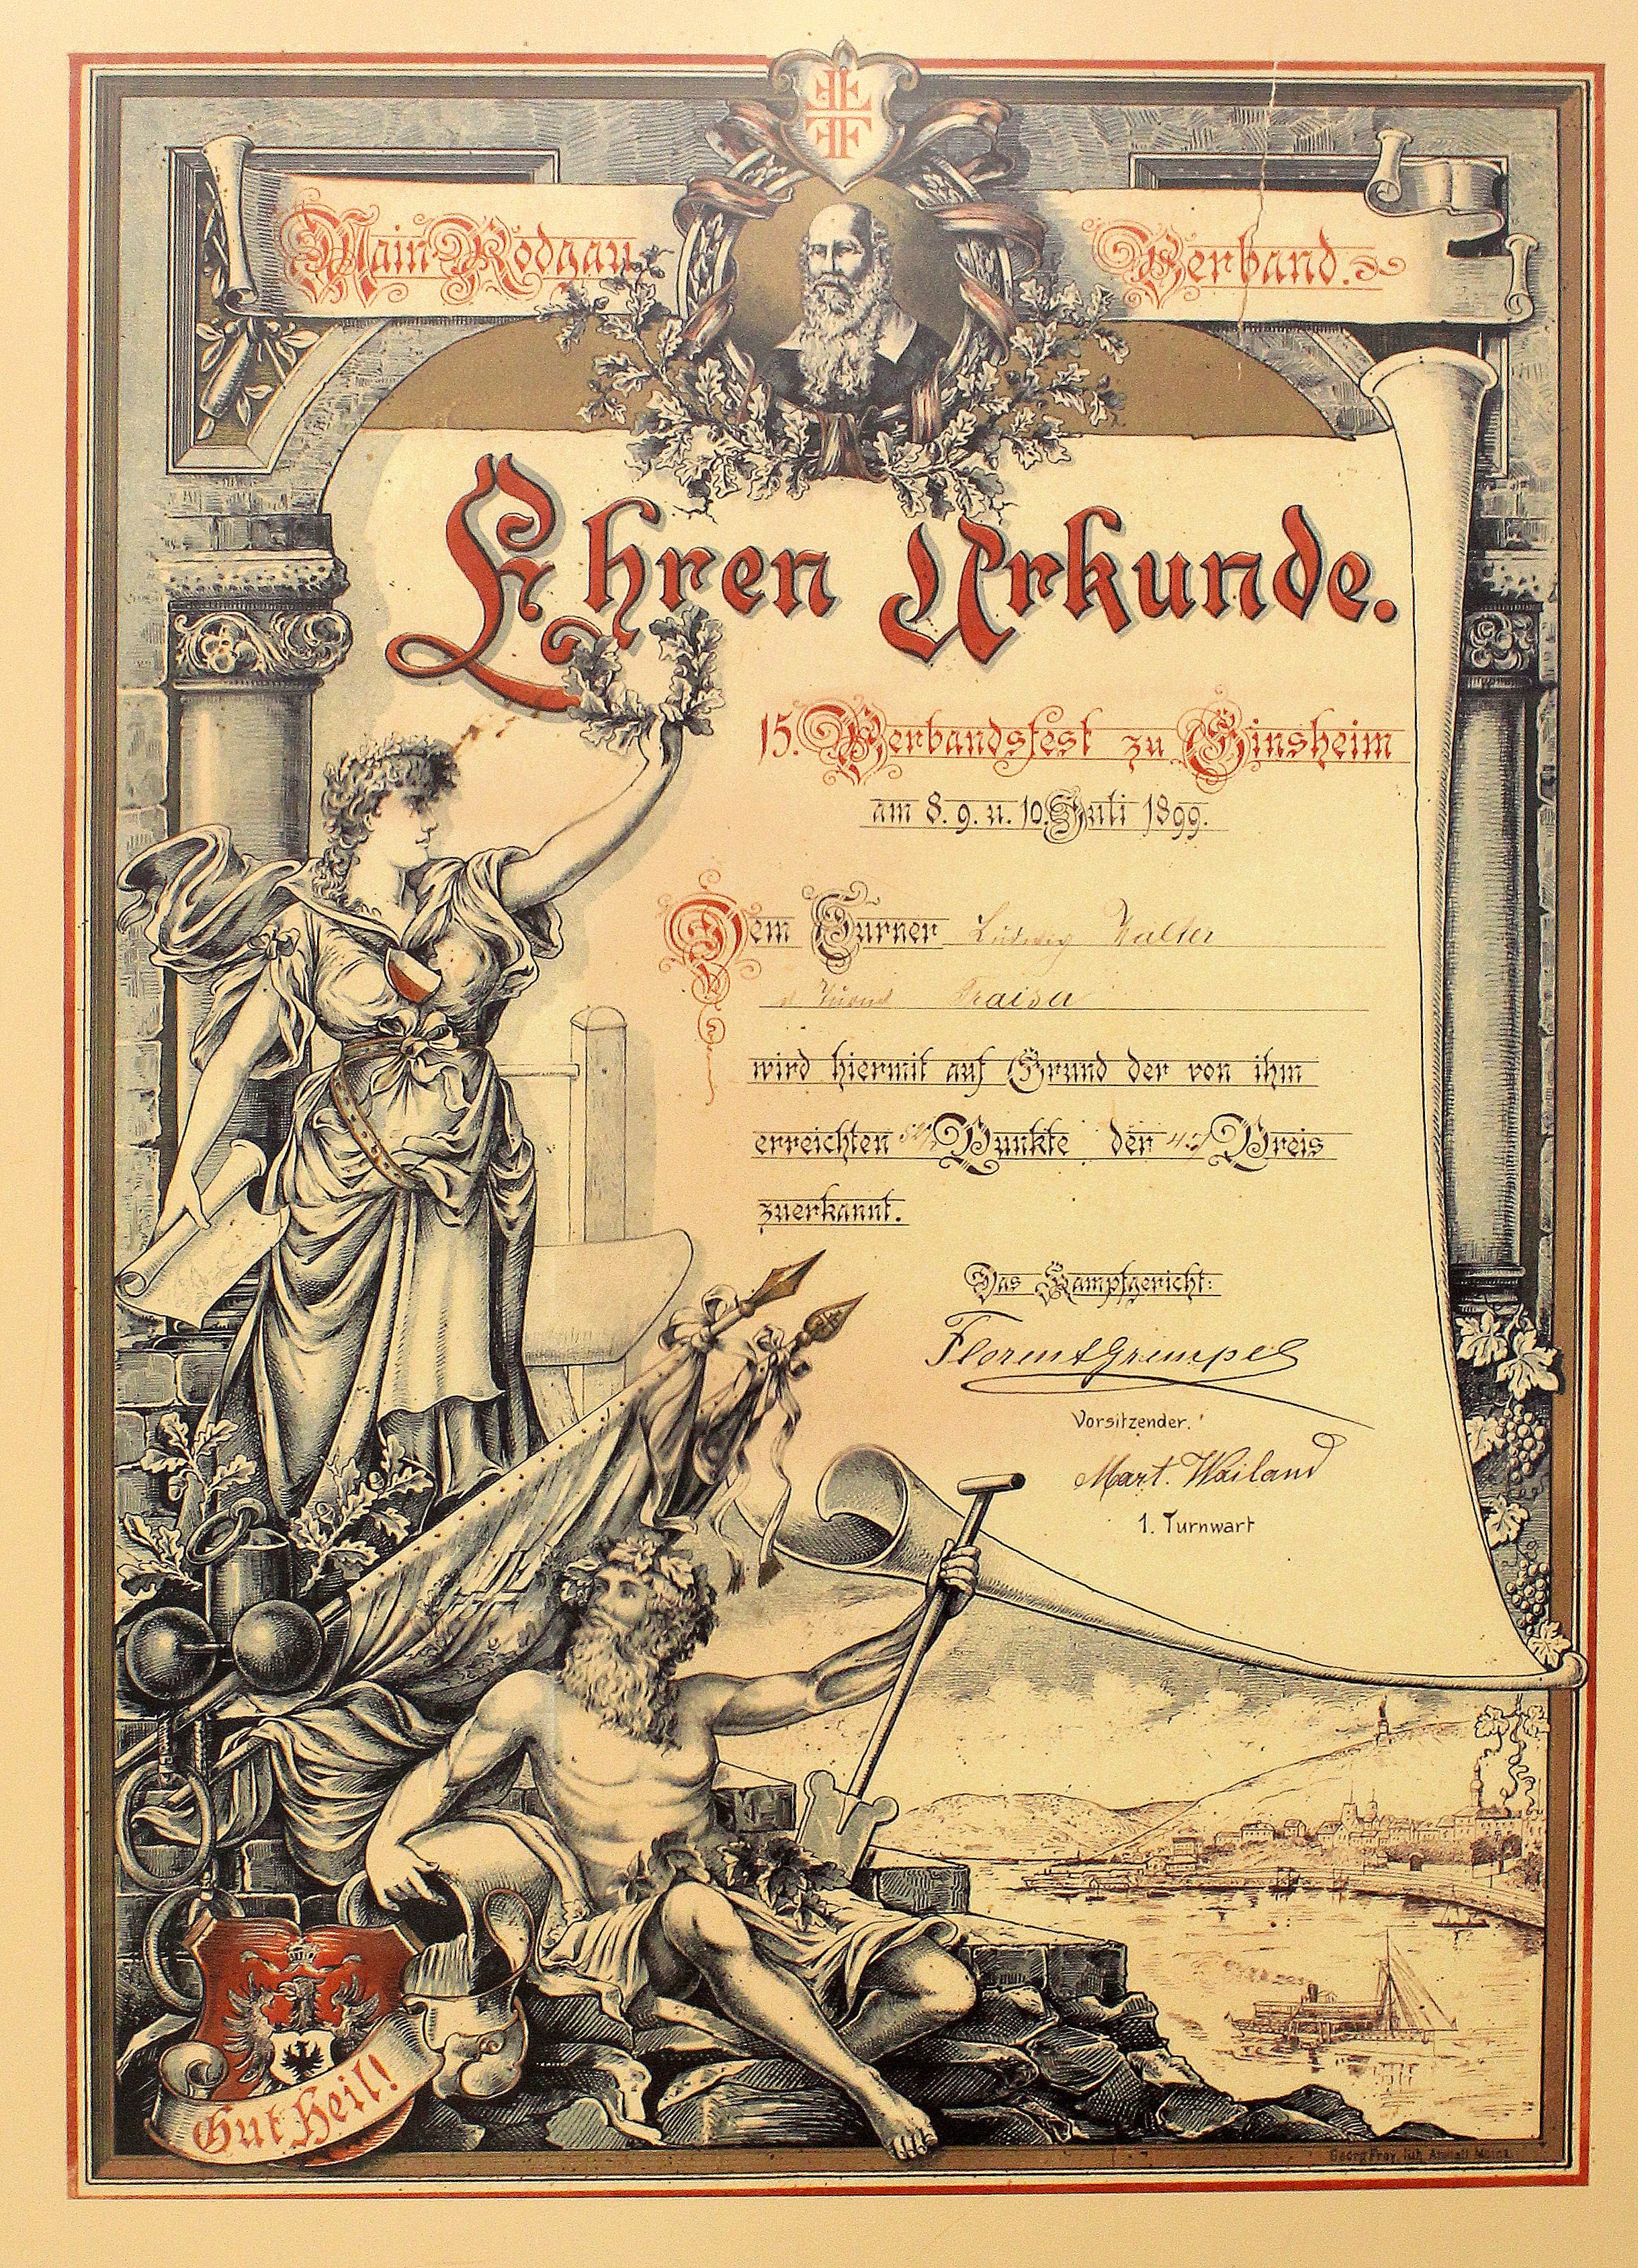 Main-Rodgau Verband.
Ehren Urkunde.
15. Verbandsfest zu Ginsheim
am 8. 9. u. 10. Juli 1899.
Dem Turner Ludwig Walter
wird hiermit auf Grund der von ihm
erreichten Punkte der Preis
zuerkannt.
Das Kampfgericht:
Vorsitzender.
Mart. Wailand
1. Turnwart
Gut Heil!
Georg Frey lith. Anstalt Mainz.